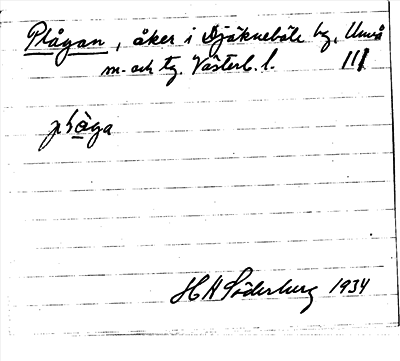 Plågan, åker i Djäkneböle by, Umeå
m. och tg. Västerb. l. III
plåga
H H Söderberg 1934